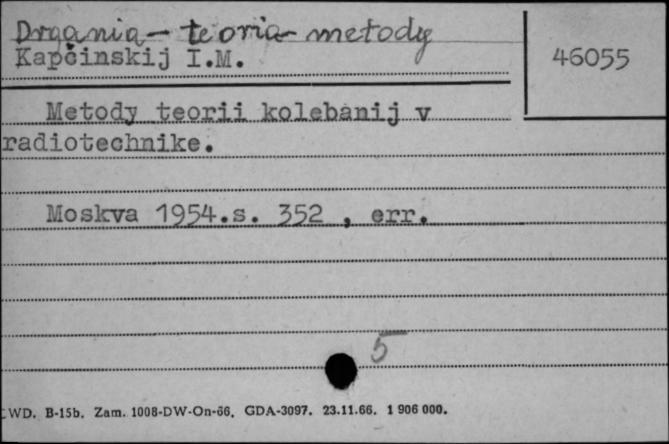 Drgania - teoria - metody
Kapčinskij I.M.
46055
Metody teorii kolebanij v
radiotechnike.
Moskva 1954.s. 352 , err.
5
WD. B-15b. Zam. 1008-DW-On-66. GDA-3097. 23.11.66. 1 906 000.